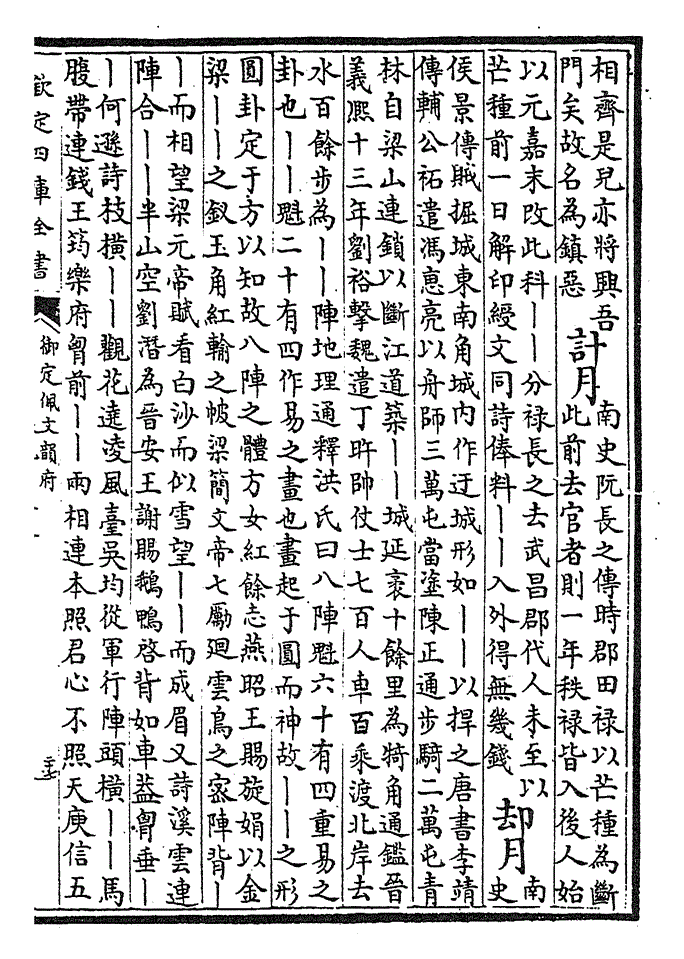 相齊是兒亦將興吾
門矣故名為鎮惡
計月
南史阮長之傳時郡田祿以芒種為斷
此前去官者則一年秩祿皆入後人始
以元嘉末改此科｜｜分祿長之去武昌郡代人未至以
芒種前一日解印綬文同詩俸料｜｜入外得無幾錢
却月
南
史
侯景傳賊掘城東南角城內作迂城形如｜｜以捍之唐書李靖
傳輔公祏遣馮惠亮以舟師三萬屯當塗陳正通步騎二萬屯青
林自梁山連鎖以斷江道築｜｜城延袤十餘里為犄角通鑑晉
義熙十三年劉裕擊魏遣丁旿帥仗士七百人車百乘渡北岸去
水百餘步為｜｜陣地理通釋洪氏曰八陣魁六十有四重易之
卦也｜｜魁二十有四作易之畫也畫起于圓而神故｜｜之形
圓卦定于方以知故八陣之體方女紅餘志燕昭王賜旋娟以金
梁｜｜之釵玉角紅輸之帔梁簡文帝七勵廻雲鳥之密陣背｜
｜而相望梁元帝賦看白沙而似雪望｜｜而成眉又詩溪雲連
陣合｜｜半山空劉潛為晉安王謝賜鵝鴨啓背如車蓋胷垂｜
｜何遜詩枝橫｜｜觀花遶凌風臺吳均從軍行陣頭橫｜｜馬
腹帶連錢王筠樂府胷前｜｜兩相連本照君心不照天庾信五
欽定四庫全書
御定佩文韻府